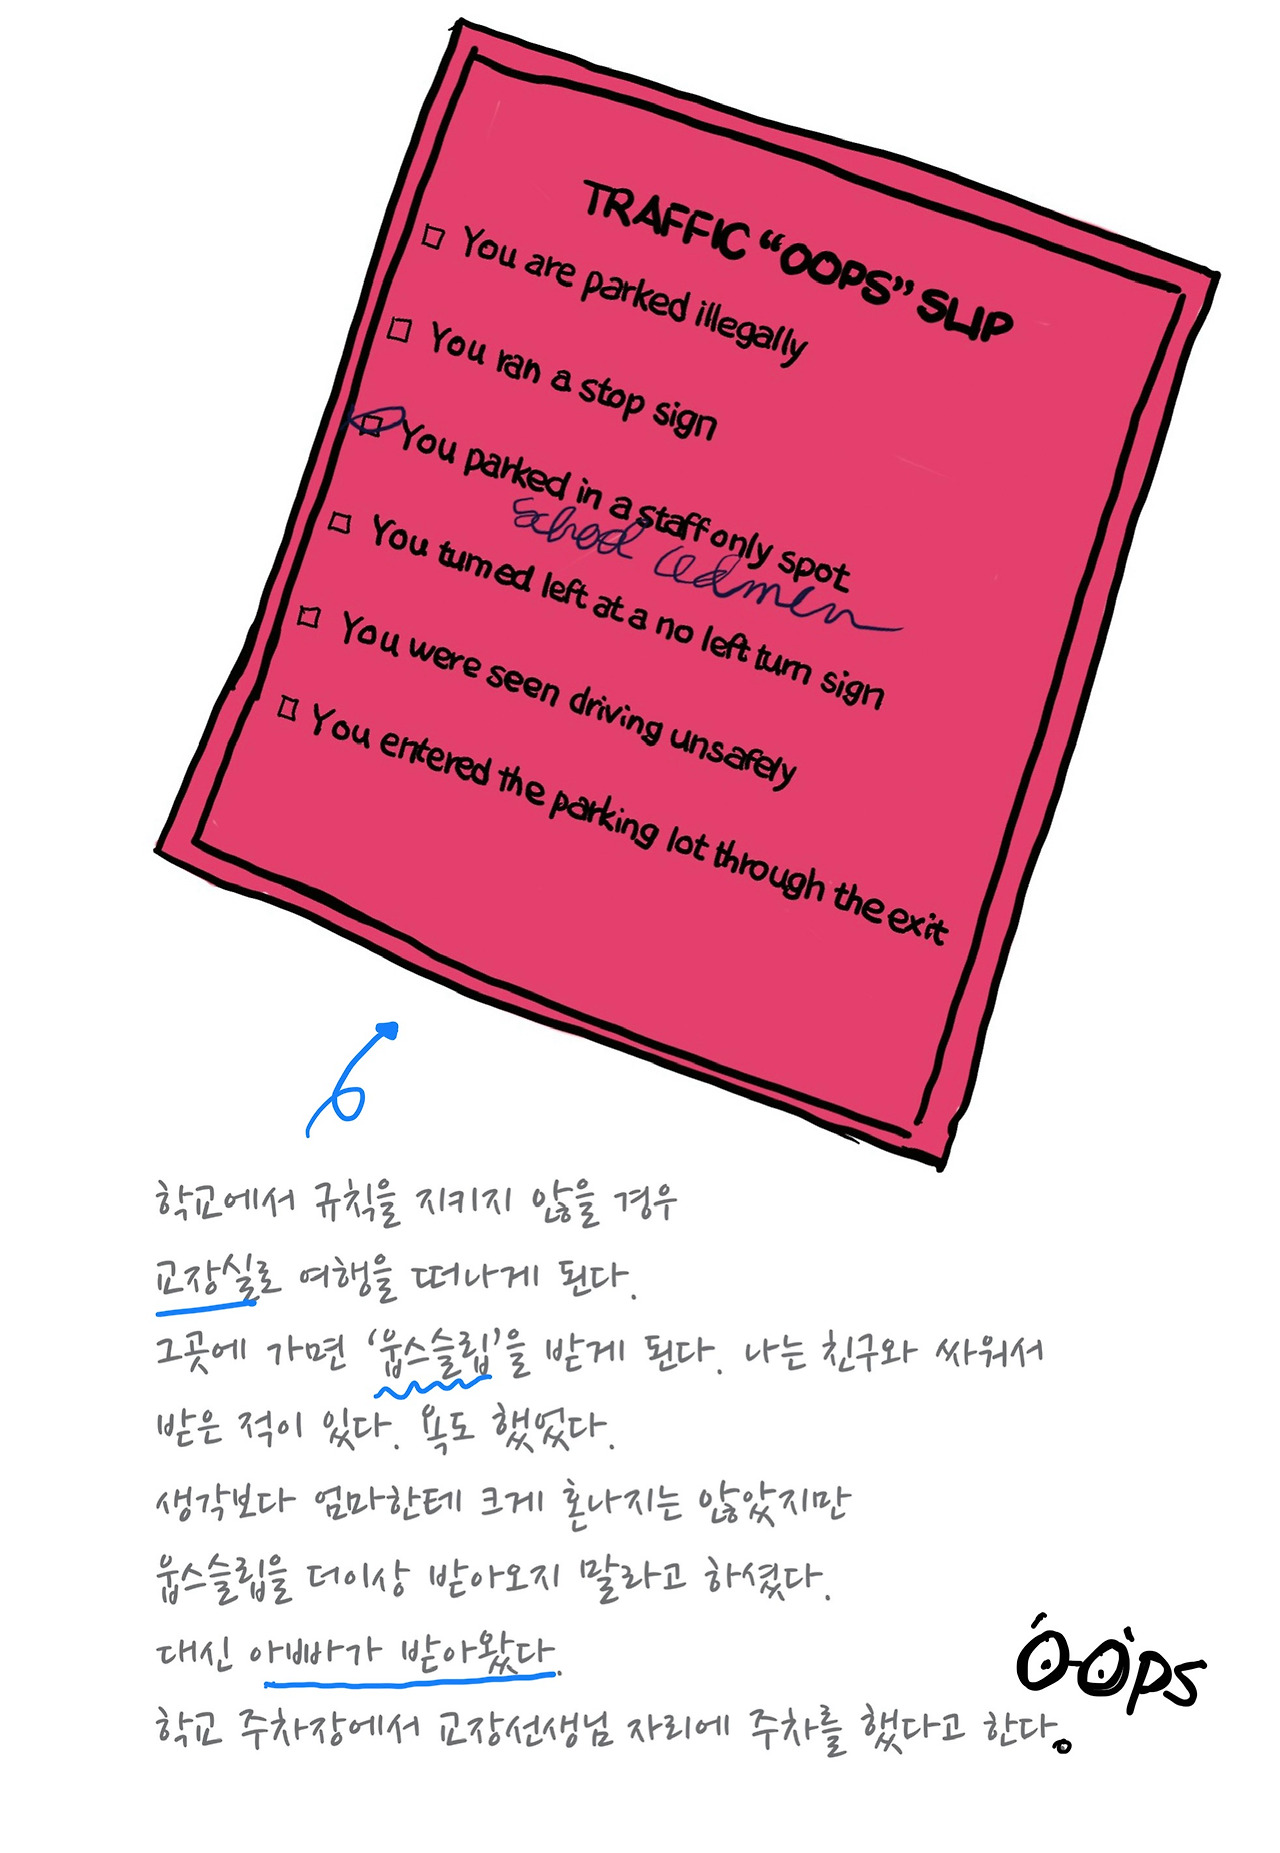 TRAFFIC “OOPS” SLIP
□ You are parked illegally
□ You ran a stop sign
□ You parked in a staff only spot
School Admen
□ You turned left at a no left turn sign
□ You were seen driving unsafely
□ You entered the parking lot through the exit
학교에서 규칙을 지키지 않을 경우
교장실로 여행을 떠나게 된다.
그곳에 가면 ‘웁스슬립’을 받게 된다. 나는 친구와 싸워서
받은 적이 있다. 욕도 했었다.
생각보다 엄마한테 크게 혼나지는 않았지만
웁스슬립을 더이상 받아오지 말라고 하셨다.
대신 아빠가 받아왔다.
OOps
학교 주차장에서 교장선생님 자리에 주차를 했다고 한다.